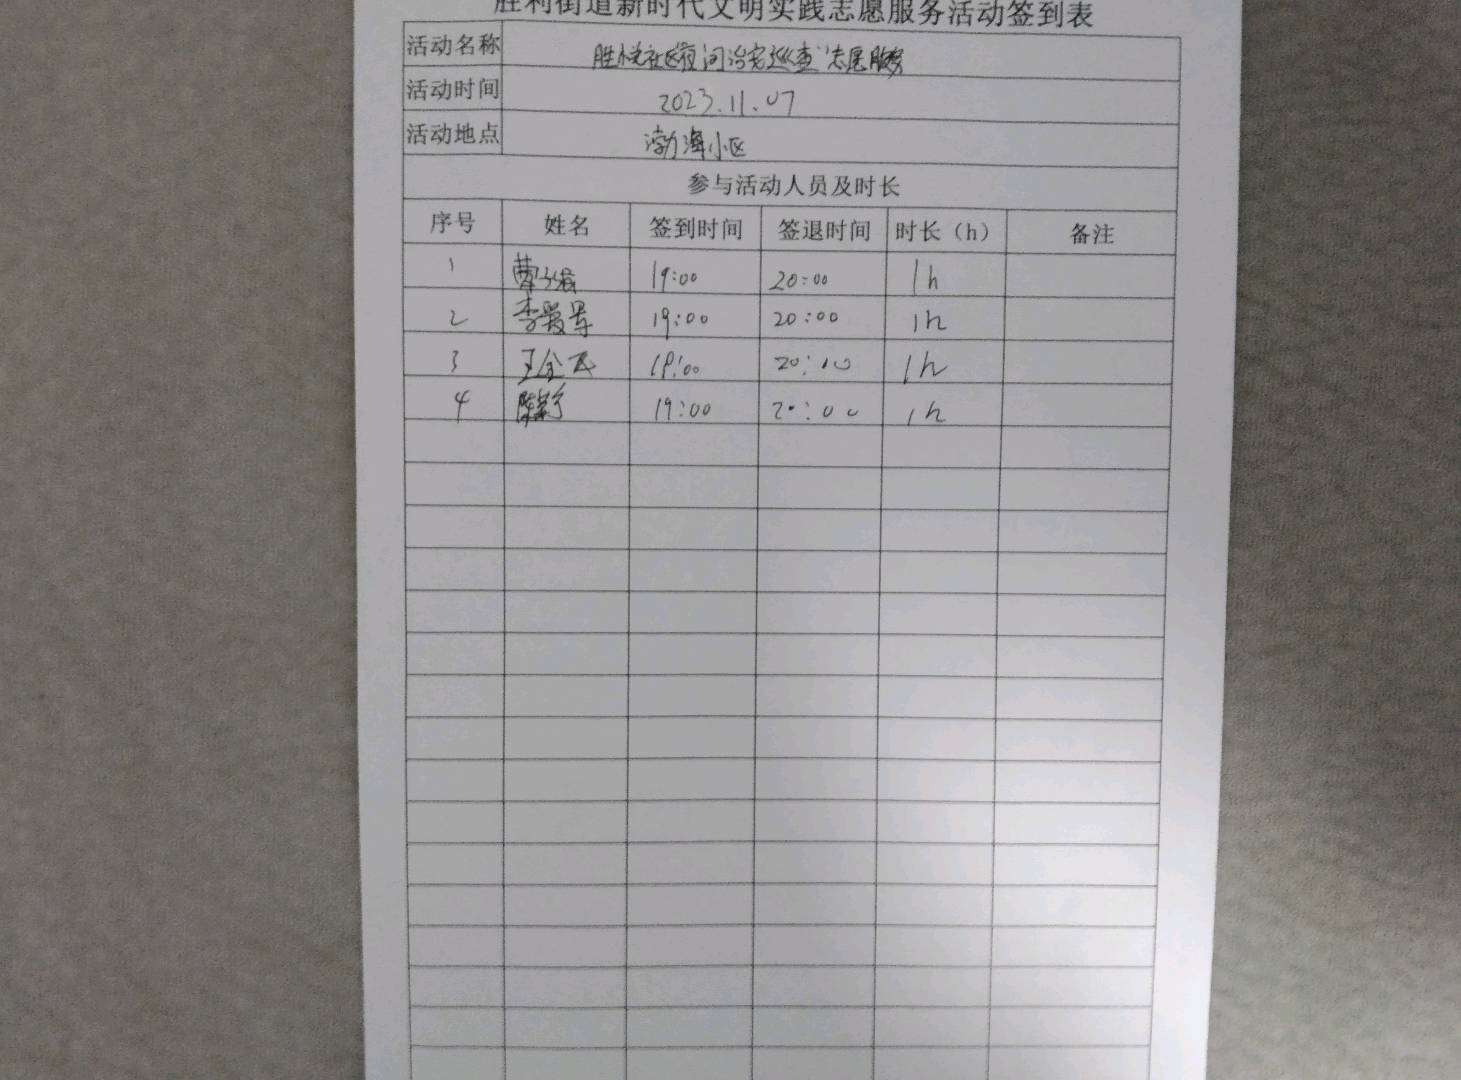 胜利街道新时代文明实践志愿服务活动签到表
活动名称 胜悦社区夜间治安巡查志愿服务
活动时间 2023.11.07
活动地点 渤海小区
参与活动人员及时长
序号 姓名 签到时间 签退时间 时长（h） 备注
1 曹 19:00 20:00 1h
2 李爱军 19:00 20:00 1h
3 王金 19:00 20:00 1h
4 陈 19:00 20:00 1h